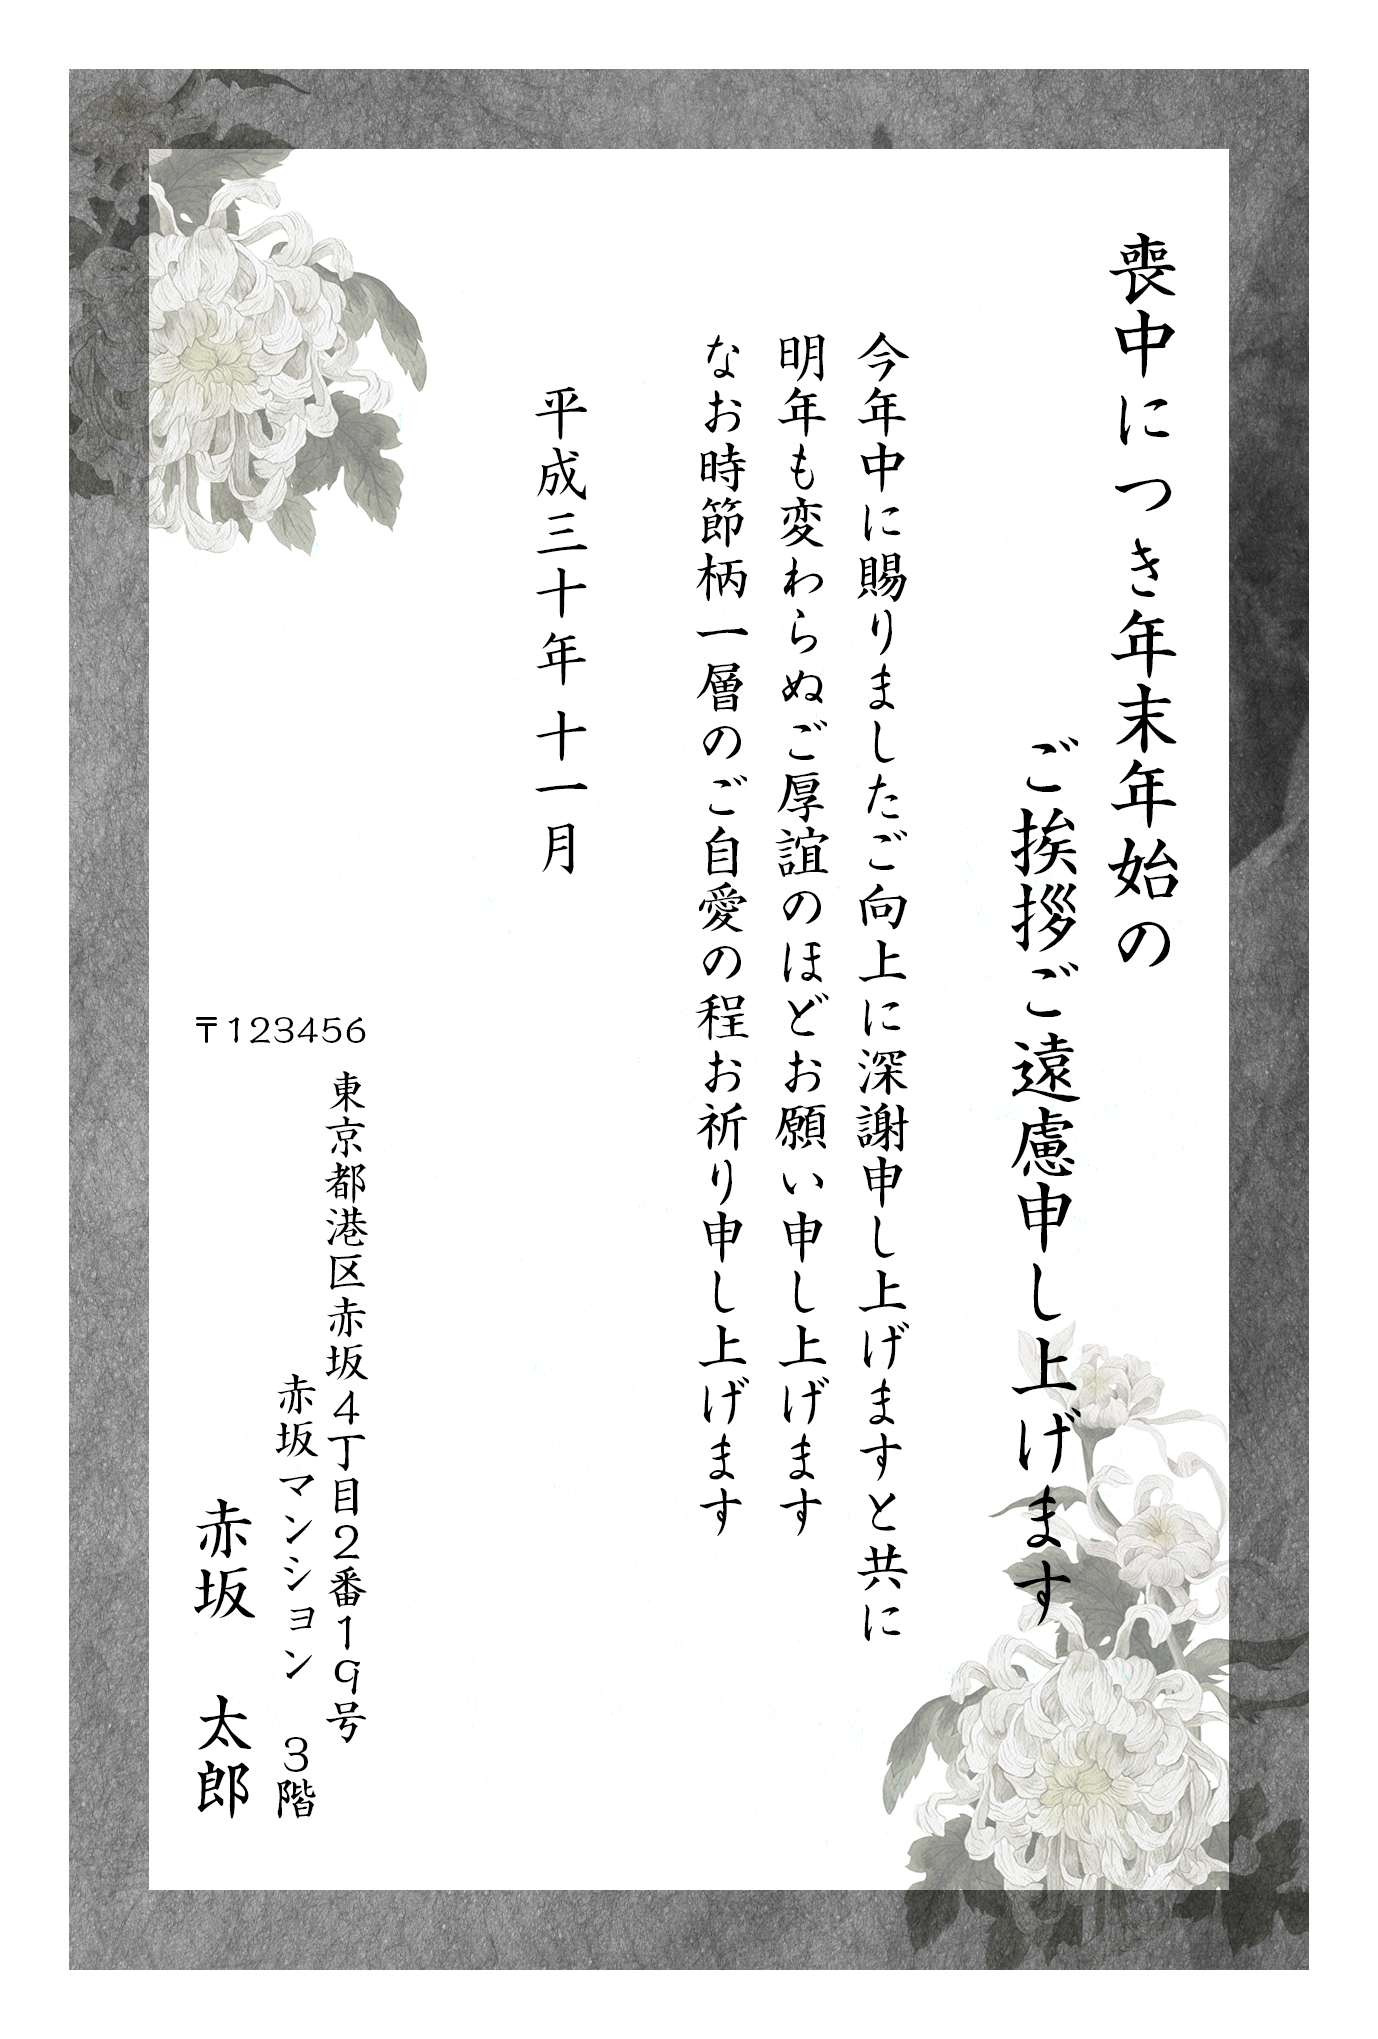 喪中につき年末年始の
ご挨拶ご遠慮申し上げます
今年中に賜りましたご向上に深謝申し上げますと共に
明年も変わらぬご厚誼のほどお願い申し上げます
なお時節柄一層のご自愛の程お祈り申し上げます
平成三十年 十一月
〒123456
東京都港区赤坂4丁目2番19号
赤坂マンション 3階
赤坂 太郎